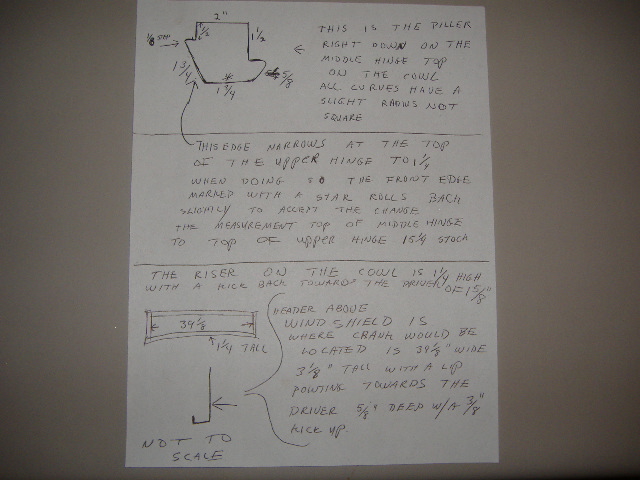 2"
1/8 STEP
1 1/2
1 3/4
5/8
1 3/4
THIS IS THE PILLER
RIGHT DOWN ON THE
MIDDLE HINGE TOP
ON THE COWL
ALL CURVES HAVE A
SLIGHT RADIUS NOT
SQUARE
THIS EDGE NARROWS AT THE TOP
OF THE UPPER HINGE TO 1 1/4
WHEN DOING SO THE FRONT EDGE
MARKED WITH A STAR ROLLS BACK
SLIGHTLY TO ACCEPT THE CHANGE
THE MEASUREMENT TOP OF MIDDLE HINGE
TO TOP OF UPPER HINGE 15 3/4 STOCK
THE RISER ON THE COWL IS 1 1/4 HIGH
WITH A KICK BACK TOWARDS THE DRIVER OF 1 5/8"
39 1/8
1 1/4 TALL
HEADER ABOVE
WINDSHIELD IS
WHERE CRANK WOULD BE
LOCATED IS 39 1/8" WIDE
3 1/8" TALL WITH A LIP
POINTING TOWARDS THE
DRIVER 5/8" DEEP W/A 3/8"
KICK UP.
NOT TO
SCALE